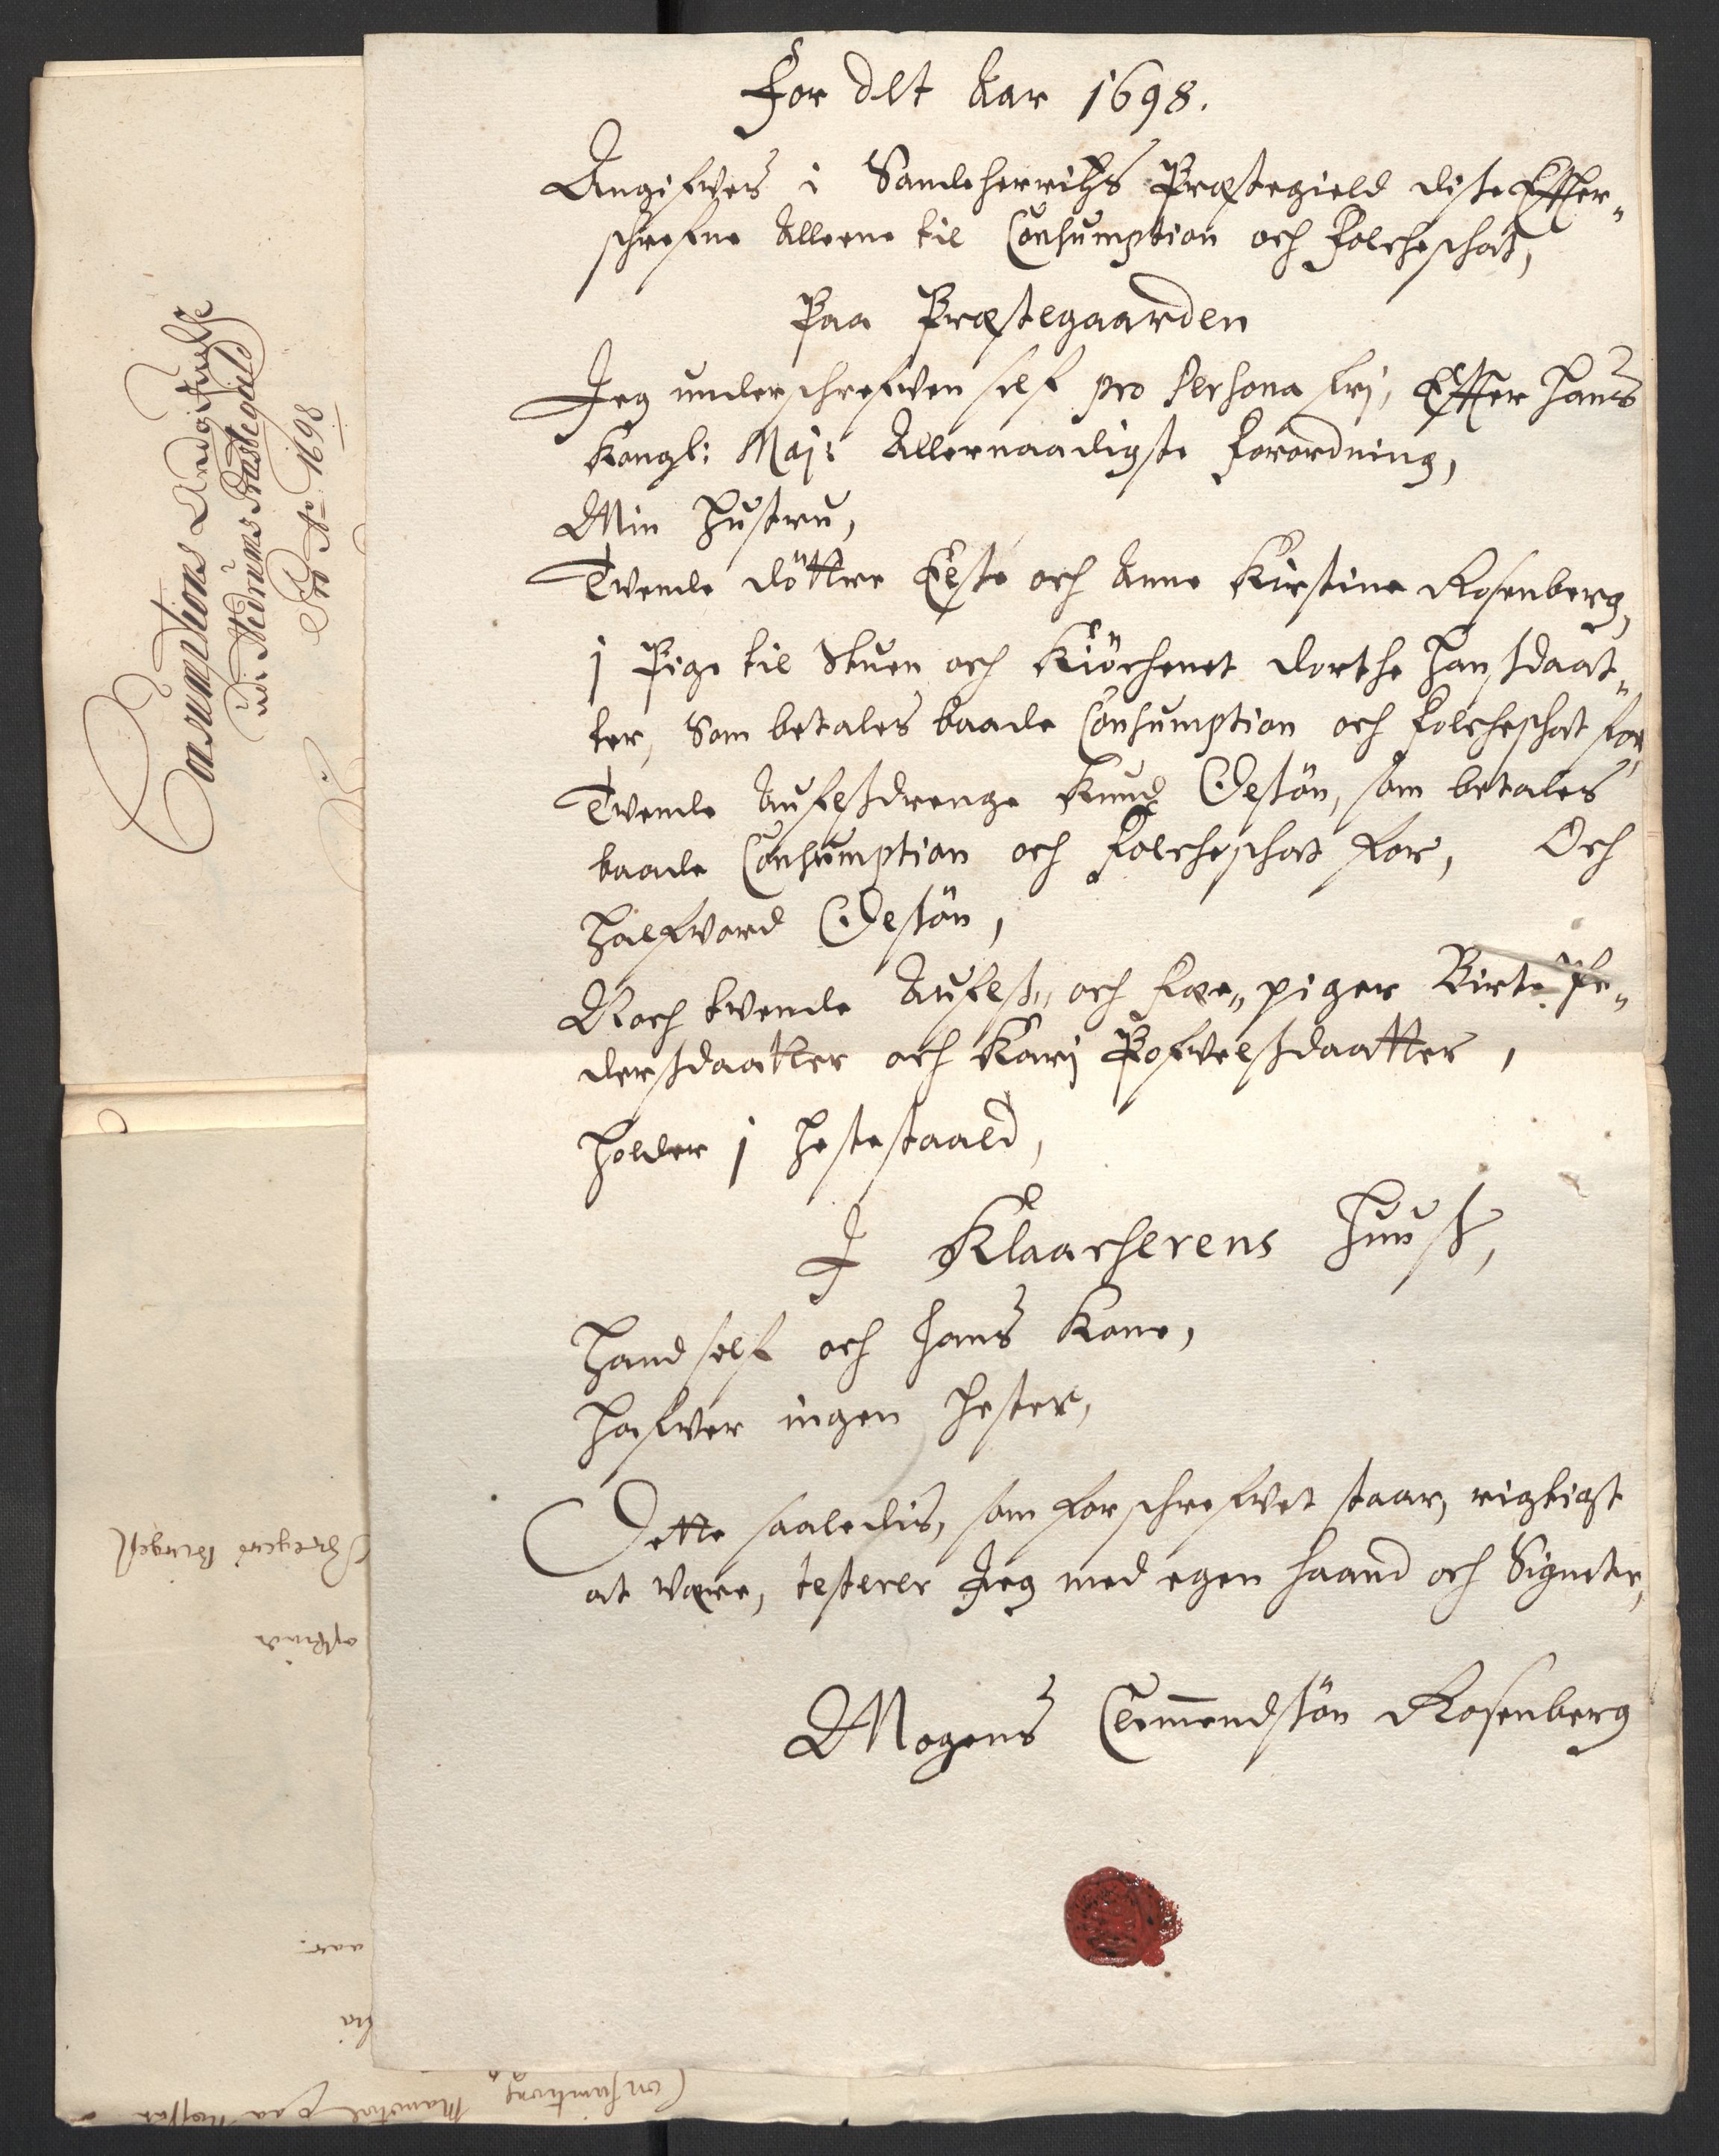 For det Aar 1698.
Angifves i Sandeherritz Præstegield diste Effter„
schrefne Alleene til Consumption och Folcheschat,
Paa Præstegaarden
Jeg underschrefven self pro Persona frj, Effter Hans
Kongl: Maj: Allernaadigste Forordning,
Min Hustru,
Tvende döttre Elste och Anne Kirstine Rosenberg,
1 Pige til Stuen och Kiöchenet Dorthe Hanßdaat„
ter, Som betales baade Consumption och Folcheschat for,
Tvende Aufelßdrenge Knud Olesön, som betales
baade Consumption och Folcheschat for, Och
Halfvord Olesön,
Noch tvende Aufelß„ och Fæe„piger Birte Pe„
derßdaatter och Karj Pofvelßdaatter,
Holder 1 Hestestaald,
I Klaacherens Huuß,
Hand self och hans Kone,
Hafver ingen Hester,
Dette saaledis, som forschrefvet staar, rigtigst
at være, testerer Jeg med egen haand och Signete,
Mogens Clemendsön Rosenberg
Consumptions Angifvelse
udi Nedrums Præstegield
Pro Ao 1698